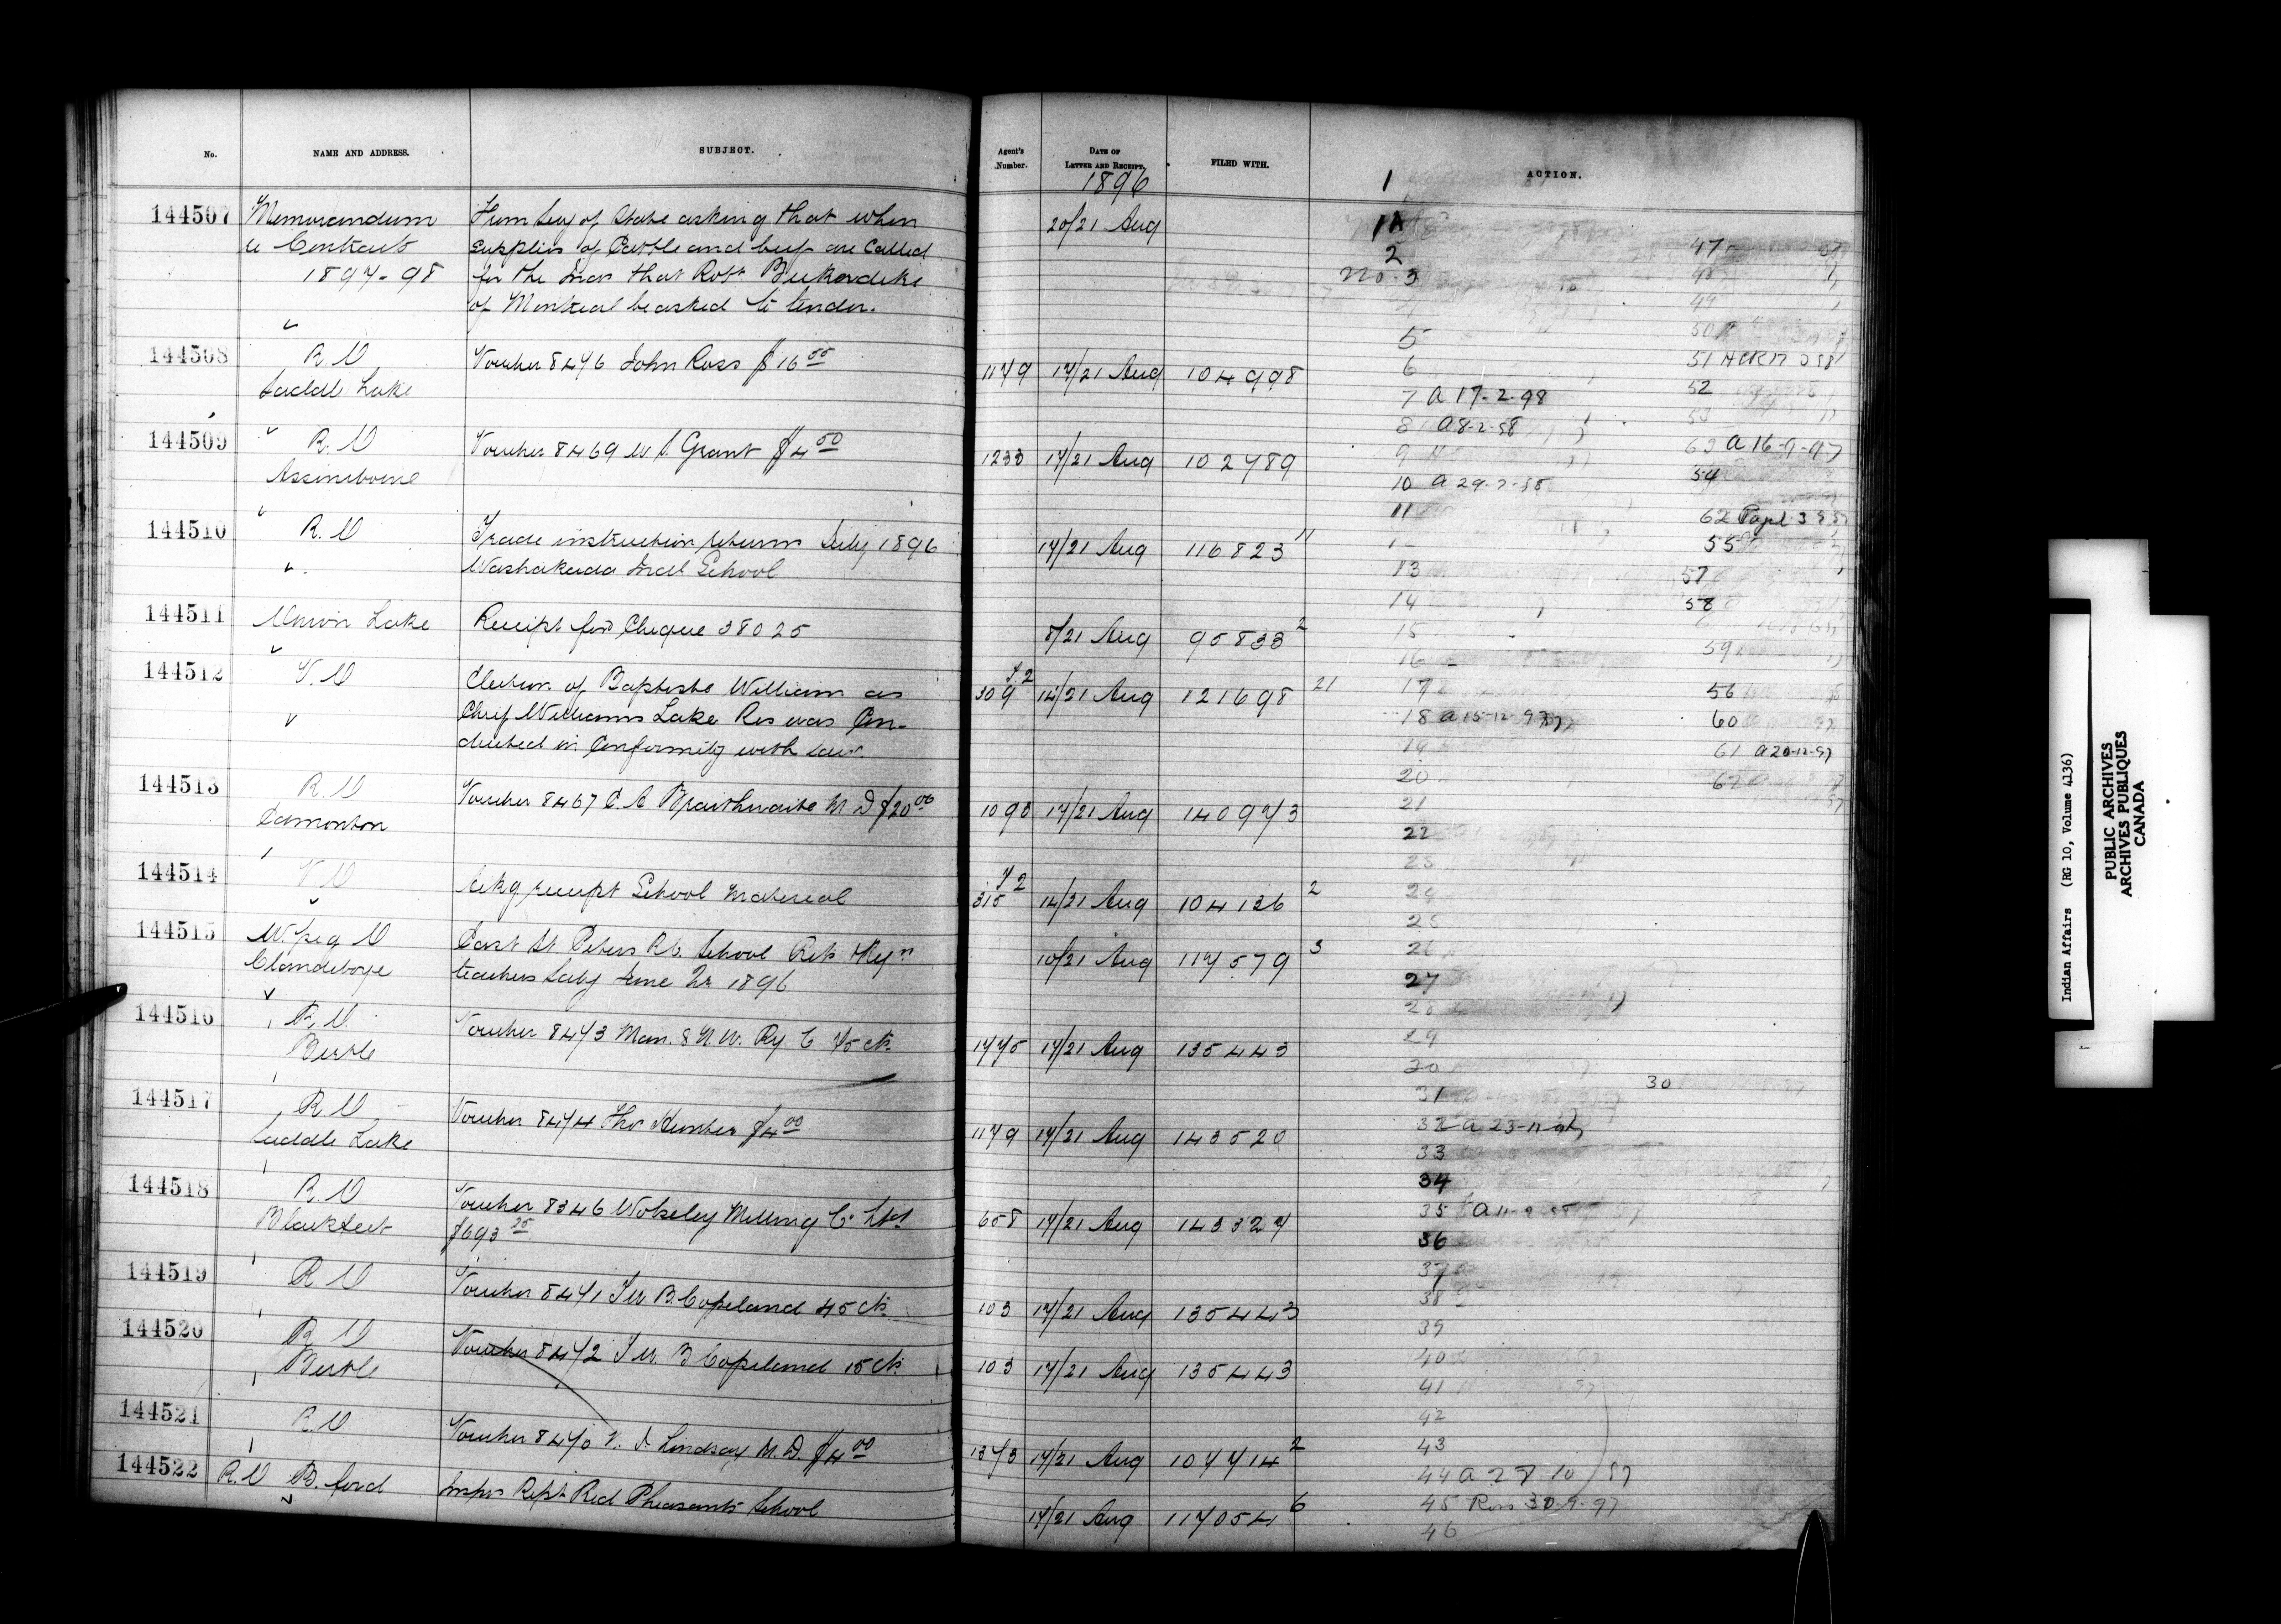 No.
NAME AND ADDRESS.
SUBJECT.
Agent's Number.
DATE OF LETTER AND RECEIPT.
FILED WITH.
ACTION.
1896
144507 Memorandum
re Contracts
1897-98
Hum Secy of State asking that when
supplies of Cattle and beef are called
for the Inds that Robt
of Montreal be asked to tender.
20/21 Aug
144508 R. O
Saddle Lake
Voucher 8476 John Ross $16 55
1179 17/21 Aug 104998
144509 R. O
Assiniboine
Voucher 8469 W. S. Grant $4 50
1233 17/21 Aug 102789
144510 R. O
Trade instruction return July 1896
Washakada Indl School
17/21 Aug 116823 11
144511 Union Lake
Receipt for Cheque 38025
8/21 Aug 95833 2
144512 V. O
Election of Baptiste William as
Chief Williams Lake Res was Con-
ducted in Conformity with law.
309 72 14/21 Aug 121698 21
144513 R. O
Edmonton
Voucher 8467 E. A Braithwaite M D $20 00
1093 17/21 Aug 140973
144514 V O
Ackg receipt School Material
315 72 14/21 Aug 104136 2
144515 W.peg O
Clandeboye
East St. Peters R.C. School Ret
teachers Saly June Qr 1896
10/21 Aug 117579 3
144516 R. O.
Birtle
Voucher 8473 Man. & N. W. Ry C 75 cts.
1775 17/21 Aug 135443
144517 R. O
Saddle Lake
Voucher 8474 Thos Hunter $4 00
1179 17/21 Aug 143520
144518 R. O
Blackfeet
Voucher 8346 Wolseley Milling Co Ltd
$693 25
658 17/21 Aug 143327
144519 R O
Voucher 8471 J W B. Copeland 45 cts.
103 17/21 Aug 135443
144520 R O
Birtle
Voucher 8472 J W B Copeland 15 cts
103 17/21 Aug 135443
144521 R. O
Voucher 8470 Lindsay M. D. $4 00
1373 17/21 Aug 107714 2
144522 R. O B. ford
Inspn Rept Red Pheasants School
17/21 Aug 117054 6
1
1A
2
no. 3
5
6
7 a 17-2-98
8 a 8-2-98
9
10
11
13
14
15
16
17
18 a 15-12-97
19
20
21
22
23
24
25
26
27
28
29
30
31
32 a 23-11-97
33
34
35
36
37
38
39
40
41
42
43
44 a 28 10 97
45 Ross 30-9-97
46
47
49
50
51
52
53
63 a 16-9-97
54
62
55
57
58
59
56
60
61 a 20-12-97
30
Indian Affairs (RG 10, Volume 4136)
PUBLIC ARCHIVES
ARCHIVES PUBLIQUES
CANADA